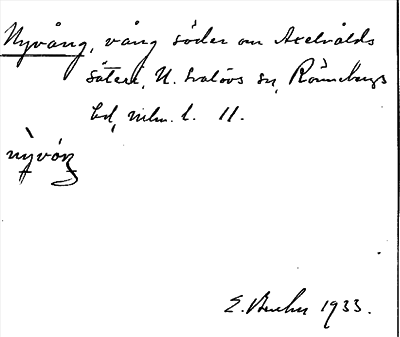 Nyvång, vång söder om Axelvålds
säteri, N. Svalövs sn, Rönnebergs
hd, Mlm. l. 11.
nỳvóŋ
E. 1933.